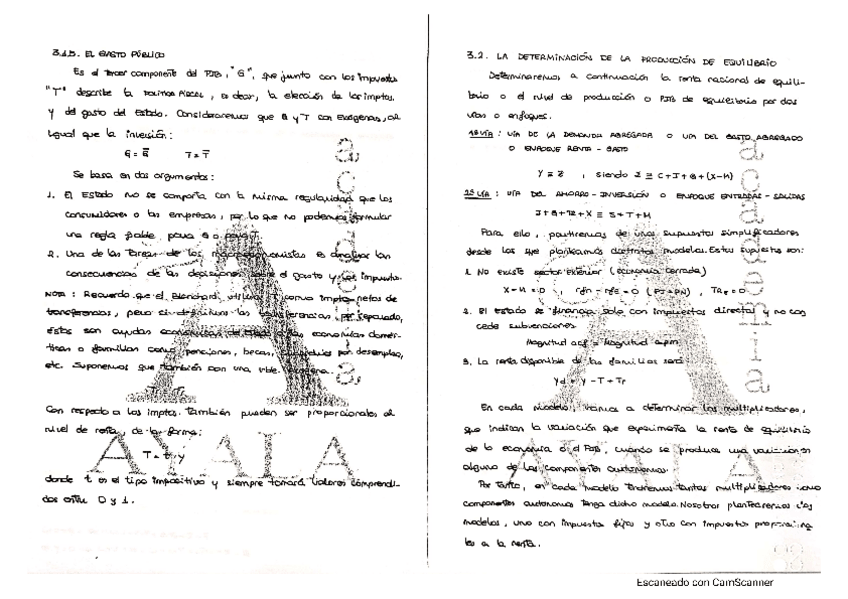 3.1.3. EL GASTO PÚBLICO
Es el tercer componente del PIB, "G", que junto con los impuestos
"T" describe la POLÍTICA FISCAL, es decir, la elección de los imptos.
y del gasto del Estado. Consideraremos que G y T son exógenas, al
igual que la inversión:
G = G̅ T = T̅
Se basa en dos argumentos:
1. El Estado no se comporta con la misma regularidad que los
consumidores o las empresas, por lo que no podemos formular
una regla fiable para G o para T.
2. Una de las tareas de los macroeconomistas es analizar las
consecuencias de las decisiones sobre el gasto y los impuestos.
NOTA: Recuerdo que el Blanchard utiliza T como imptos netos de
transferencias, pero si definimos las transferencias por separado,
éstas son ayudas económicas del Estado a las economías domés-
ticas o familias como pensiones, becas, subsidios por desempleo,
etc. Suponemos que también son una vble. exógena.
Con respecto a los imptos. también pueden ser proporcionales al
nivel de renta, de la forma:
T = t · Y
donde t es el tipo impositivo y siempre tomará valores comprendi-
dos entre 0 y 1.
3.2. LA DETERMINACIÓN DE LA PRODUCCIÓN DE EQUILIBRIO
Determinaremos a continuación la renta nacional de equili-
brio o el nivel de producción o PIB de equilibrio por dos
vías o enfoques.
1ª VÍA: VÍA DE LA DEMANDA AGREGADA O VÍA DEL GASTO AGREGADO
O ENFOQUE RENTA - GASTO
Y = Z, siendo Z ≡ C+I+G+(X-M)
VÍA: VÍA DEL AHORRO - INVERSIÓN O ENFOQUE ENTRADAS - SALIDAS
I+G+TR+X ≡ S+T+M
Para ello, partiremos de unos supuestos simplificadores
desde los que planteamos distintos modelos. Estos supuestos son:
1. No existe sector exterior (economía cerrada)
X-M=0, rfn-rfe=0 (PI=PN), TRe=0
2. El Estado se financia solo con impuestos directos y no con
cede subvenciones
Magnitud acf = Magnitud apm
3. La renta disponible de las familias será:
Yd = Y - T + Tr
En cada modelo, vamos a determinar los multiplicadores,
que indican la variación que experimenta la renta de equilibrio
de la economía o el PIB, cuando se produce una variación en
alguno de los componentes autónomos.
Por tanto, en cada modelo tendremos tantos multiplicadores como
componentes autónomos tenga dicho modelo. Nosotros plantearemos
modelos, uno con impuestos fijos y otro con impuestos proporciona
les a la renta.
academia
AYALA
Escaneado con CamScanner